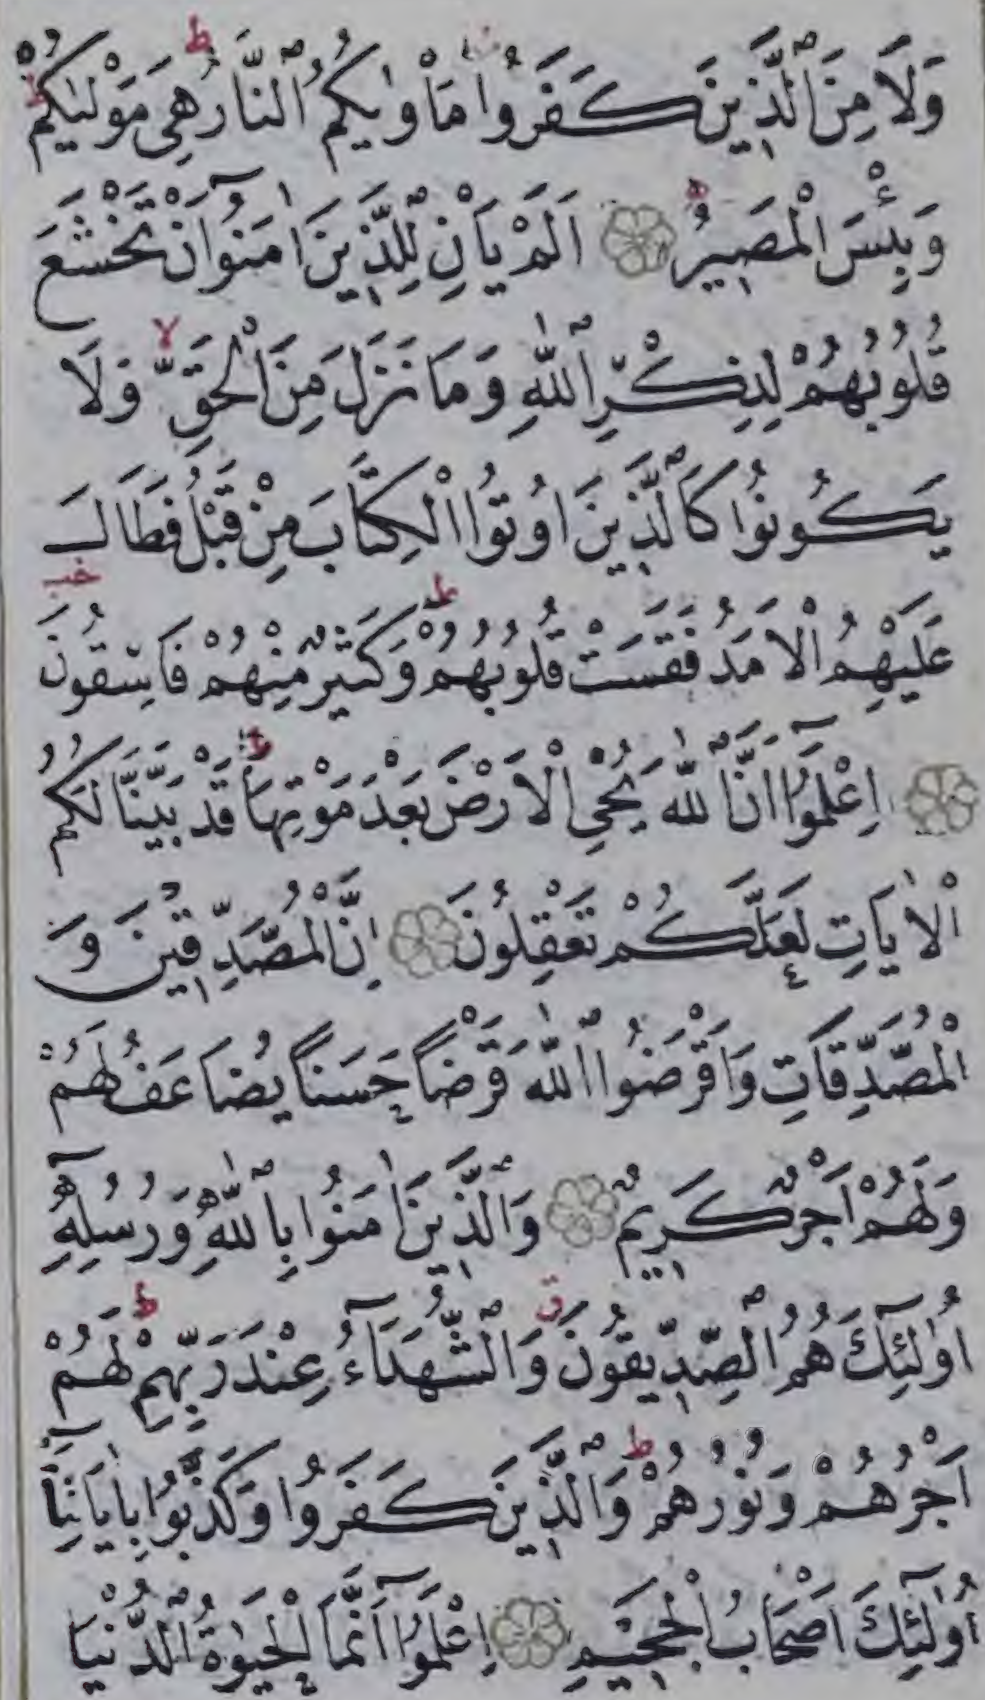 وَلَا مِنَ ٱلَّذِينَ كَفَرُوا مَأْوٰيكُمُ ٱلنَّارُ هِىَ مَوْلٰيكُمْ
وَبِئْسَ الْمَصِيرُ اَلَمْ يَأْنِ لِلَّذِينَ اٰمَنُوٓا اَنْ تَخْشَعَ
قُلُوبُهُمْ لِذِكْرِ ٱللّٰهِ وَمَا نَزَلَ مِنَ الْحَقِّ وَلَا
يَكُونُوا كَٱلَّذِينَ اُوتُوا الْكِتَابَ مِنْ قَبْلُ فَطَالَ
عَلَيْهِمُ الْاَمَدُ فَقَسَتْ قُلُوبُهُمْ وَكَثِيرٌ مِنْهُمْ فَاسِقُونَ
اِعْلَمُوٓا اَنَّ ٱللّٰهَ يُحْيِ الْاَرْضَ بَعْدَ مَوْتِهَا قَدْ بَيَّنَّا لَكُمُ
الْاٰيَاتِ لَعَلَّكُمْ تَعْقِلُونَ اِنَّ الْمُصَّدِّقِينَ وَ
الْمُصَّدِّقَاتِ وَاَقْرَضُوا ٱللّٰهَ قَرْضًا حَسَنًا يُضَاعَفُ لَهُمْ
وَلَهُمْ اَجْرٌ كَرِيمٌ وَٱلَّذِينَ اٰمَنُوا بِٱللّٰهِ وَرُسُلِهِٓ
اُولٰٓئِكَ هُمُ ٱلصِّدِّيقُونَ وَٱلشُّهَدَآءُ عِنْدَ رَبِّهِمْ لَهُمْ
اَجْرُهُمْ وَنُورُهُمْ وَٱلَّذِينَ كَفَرُوا وَكَذَّبُوا بِاٰيَاتِنَآ
اُولٰٓئِكَ اَصْحَابُ الْجَحِيمِ اِعْلَمُوٓا اَنَّمَا الْحَيٰوةُ ٱلدُّنْيَا